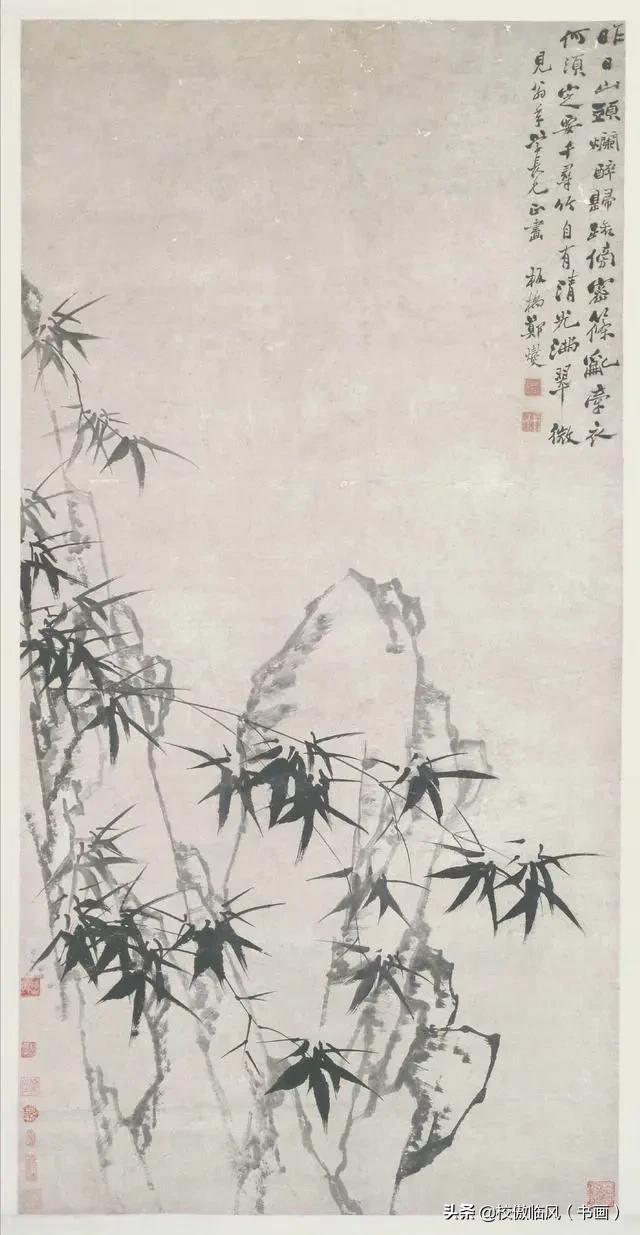 昨日山頭爛醉歸路傍密篠亂牽衣
何須定要千尋竹自有清光滿翠微
見翁年學長兄正畫 板橋鄭燮
头条 @校傲临风（书画）